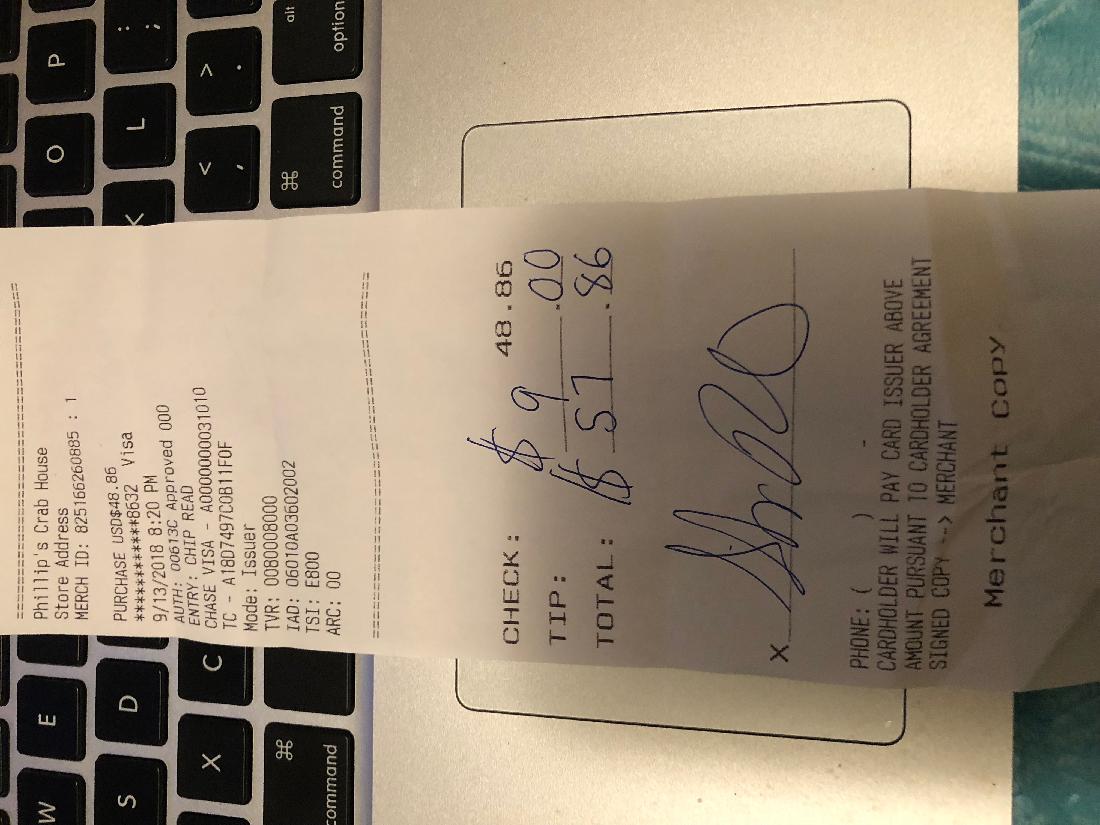 ======================================
Phillip's Crab House
Store Address
MERCH ID: 825166260885 : 1
PURCHASE USD$48.86
************8632 Visa
9/13/2018 8:20 PM
AUTH: 00613C Approved 000
ENTRY: CHIP READ
CHASE VISA - A0000000031010
TC - A18D7497C0B11F0F
Mode: Issuer
TVR: 0080008000
IAD: 06010A03602002
TSI: E800
ARC: 00
======================================
CHECK: 48.86
TIP: $ 9.00
TOTAL: $ 57.86
X
PHONE: ( ) -
CARDHOLDER WILL PAY CARD ISSUER ABOVE
AMOUNT PURSUANT TO CARDHOLDER AGREEMENT
SIGNED COPY --> MERCHANT
Merchant Copy
P
: ;
alt option
O
L
> .
< ,
⌘ command
K
W
E
S
D
X
C
⌘ command